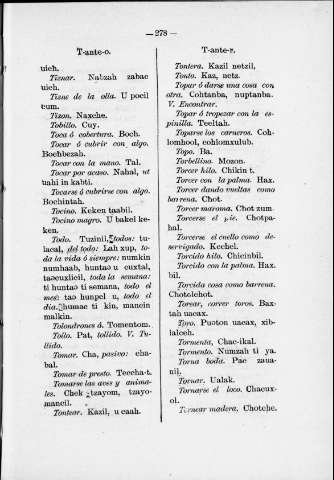 — 278 —
T-ante-o.
uich.
Tiznar. Nabzah zabac
uich.
Tizne de la olla. U pocil
cum.
Tizon. Naxche.
Tobillo. Cuy.
Toca ó cobertura. Boch.
Tocar ó cubrir con algo.
Bochbezah.
Tocar con la mano. Tal.
Tocar por acaso. Nahal, ut
uahi in kabti.
Tocarse ó cubrirse con algo.
Bochintah.
Tocino. Keken taabil.
Tocino magro. U bakel ke-
ken.
Todo. Tuzinil, todos: tu-
lacal, del todo: Lah xup, to-
da la vida ó siempre: numkin
numhaab, huntao u cuxtal,
tancuxlicil, toda la semana:
ti huntao ti semana, todo el
mes: tao hunpel u, todo el
dia. humac ti kin, mancin
malkin.
Tolondrones d. Tomentom.
Tollo. Pat, tollido. V. Tu-
llido.
Tomar. Cha, pasivo: cha-
bal.
Tomar de presto. Teccha-t.
Tomarse las aves y anima-
les. Chek tzayom, tzayo-
mancil.
Tontear. Kazil, u caah.
T-ante-r.
Tontera. Kazil netzil,
Tonto. Kaz, netz.
Topar ó darse una cosa con
otra. Cohtanba, nuptanba.
V. Encontrar.
Topar ó tropezar con la es-
pinilla. Teeltah.
Toparse los carneros. Coh-
lomhool, cohlomxulub.
Topo. Ba.
Torbellino. Mozon.
Torcer hilo. Chikin t.
Torcer con la palma. Hax.
Torcer dando vueltas como
barrena. Chot.
Torcer maroma. Chot zum.
Torcerse el pie. Chotpa-
hal.
Torcerse el cuello como de-
sorrigado. Kechel.
Torcido hilo. Chicinbil.
Torcido con la palma. Hax.
bil.
Torcida cosa como barrena.
Chotolchot.
Torear, correr toros. Bax-
tah uacax.
Toro. Puoton uacax, xib-
lalceh.
Tormenta, Chac-ikal.
Tormento. Numzah ti ya.
Torna boda. Pac zaua-
nil.
Tornar. Ualak.
Tornarse el loco. Chacux-
ol.
Tornear madera. Chotche.